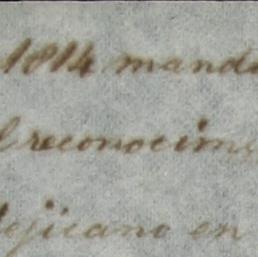 1814 mand
reconocim
jicano en